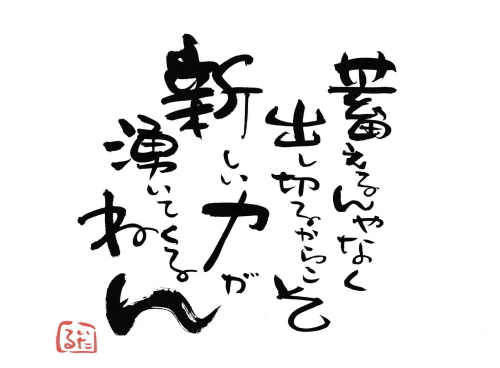 蓄えるんやなく
出し切るからこそ
新しい力が
湧いてくる
ねん